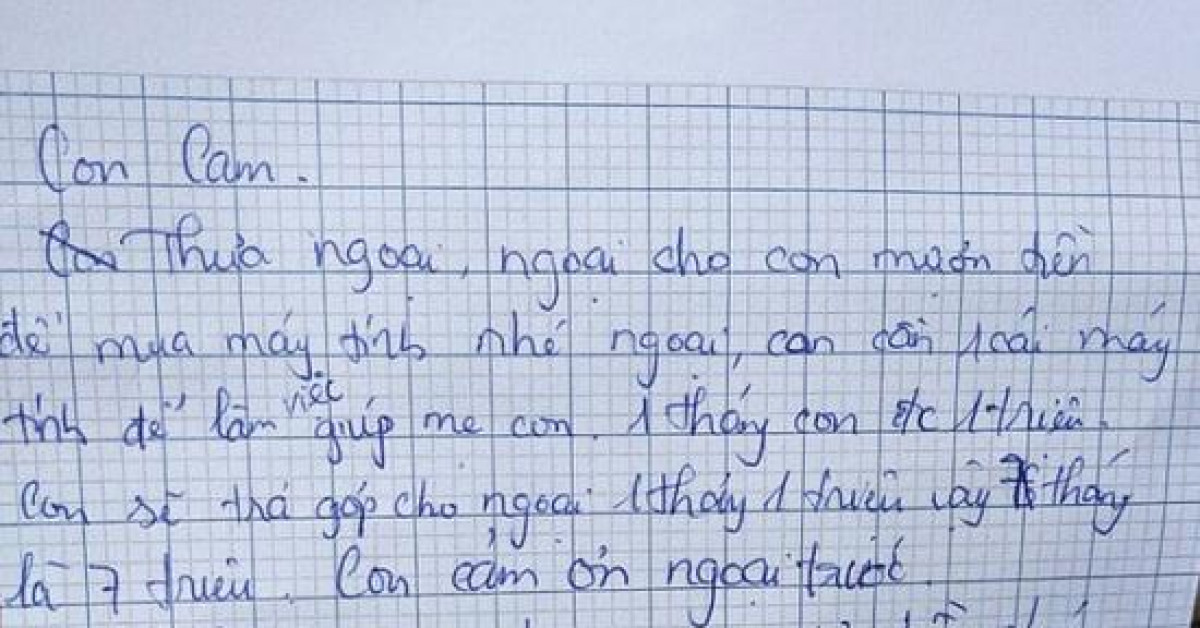 Con Cam.
Thưa ngoại, ngoại cho con mượn tiền
để mua máy tính nhé ngoại, con cần 1 cái máy
tính để làm việc giúp mẹ con. 1 tháng con đc 1 triệu.
Con sẽ trả góp cho ngoại 1 tháng 1 triệu vậy 7 tháng
là 7 triệu. Con cảm ơn ngoại trước.